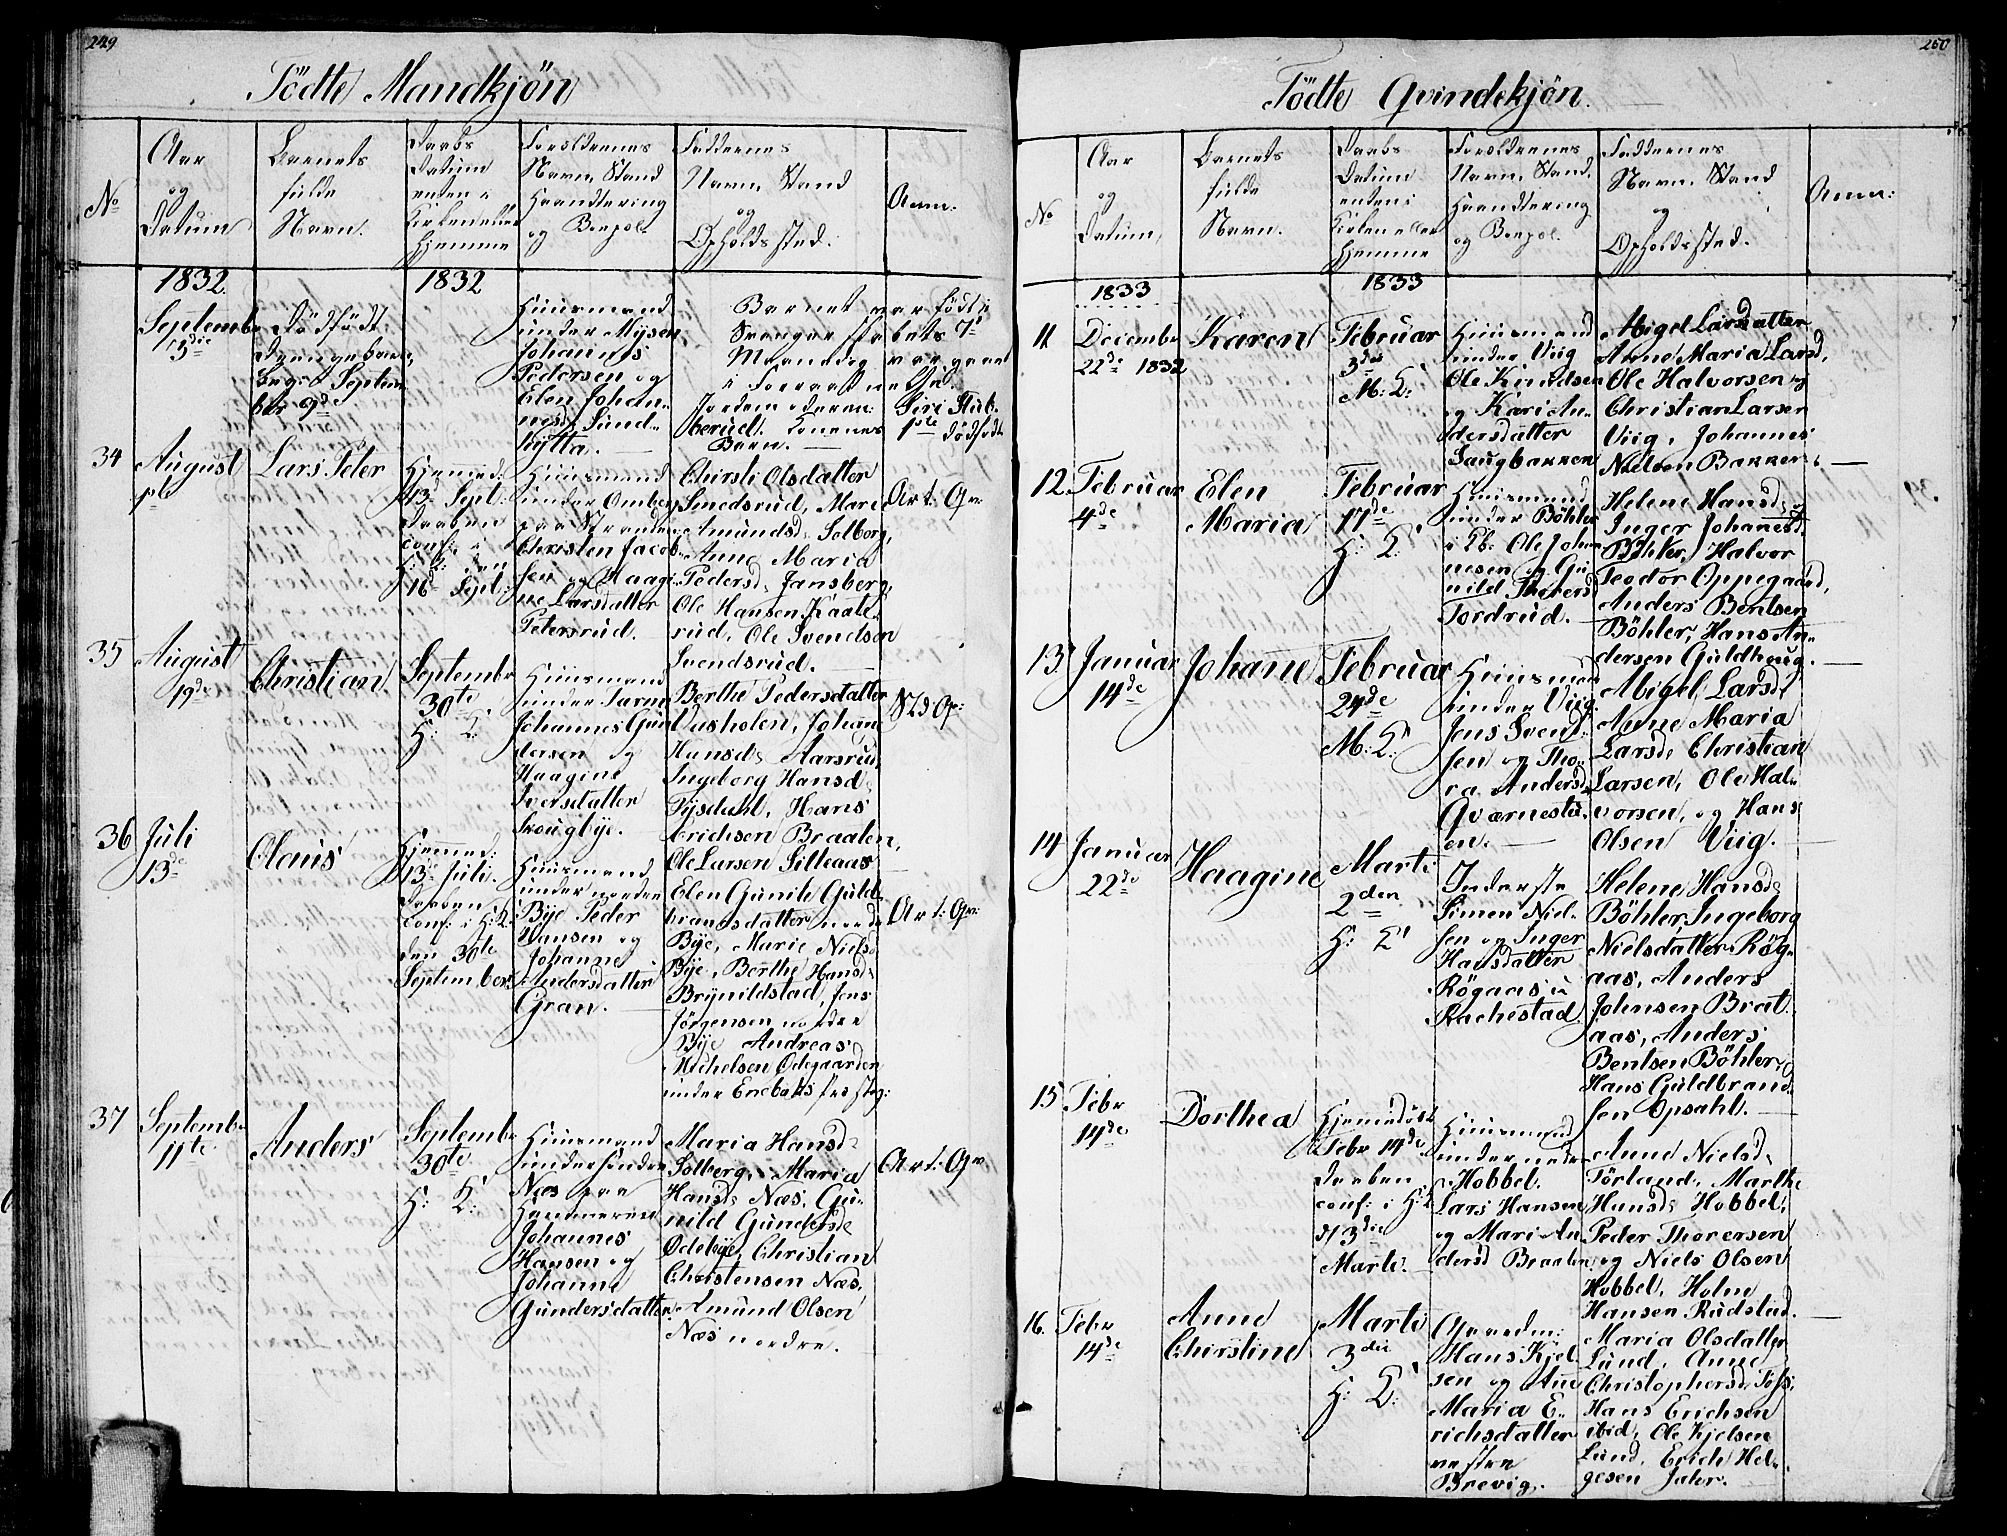 249
Födte Mandkjön
No
Aar
og
Datum
Barnets
fulde
Navn.
Daabs
Datum
enten i
Kirken eller
Hjemme
Forældrenes
Navn, Stand
Haandtering
og Boepel.
Faddernes
Navn, Stand
og
Opholdssted.
Anm:
1832
1832
Septembr
3die
Dødfödt
Drengebarn,
begr: Septem-
ber 9de
Huusmand
under Mysen
Johannes
Pedersen og
Elen Johan-
nesd: Sund-
hytta.
Barnet var födt i
Svangerskabets 7de
Maaned og var gaaet
i Forraadnelse.
Jordemoderen: Siri Stub-
berud. Konenes 1ste dödfödte
Barn.
34
August
1ste
Lars Peter
Hjemmed:
13de Sept:
Daaben
conf: i
H: K: den
16de Sept:
Huusmand
under Omberg
paa Stranden
Christen Jacob-
sen og Haagi-
ne Larsdatter
Petersrud.
Chirsti Olsdatter
Smedsrud, Mari
Amundsd: Solberg,
Anne Maria
Pedersd: Jansberg,
Ole Hansen Kaate-
rud, Ole Svendsen
Svendsrud.
35
August
19de
Christian
Septembr
30te
H: K:
Huusmand
under
Johannes Gun-
dersen og
Haagine
Iversdatter
Skougbye.
Berthe Pedersdatter
Johan
Hansd: Aarsrud,
Ingeborg Hansd:
Hans
Erichsen Braaten,
Ole Larsen Silleaas
36
Juli
13de
Olaus
Hjemmed:
13de Juli.
Daaben
conf: i H: K:
den 30te
September
Huusmand
under nordre
Bye Peder
Hansen og
Johanne
Andersdatter
Gran.
Elen Gunild Guld-
brandsdatter nordre
Bye, Marie Nielsd:
Bye, Berthe Hansd:
Brynildstad, Jens
Jörgensen nordre
Bye Andreas
Michelsen Ödegaarden
under Enebaks Præsteg:
37
Septembr
11te
Anders
Septembr
30te
H: K:
Huusmand
under söndre
Næs paa
Johannes
Hansen og
Johanne
Gundersdatter.
Maria Hansd:
Solberg, Maria
Hansd: Næs, Gu-
nild Gundersd:
Ödebye, Christian
Christensen Næs,
Amund Olsen
Næs nordre.
250
Födte Qvindekjön.
No
Aar
og
Datum
Barnets
fulde
Navn.
Daabs
Datum
enten i
Kirken eller
Hjemme
Forældrenes
Navn, Stand,
Haandtering
og Boepel.
Faddernes
Navn, Stand
og
Opholdssted.
Anm:
1833
1833
11
Decembr
22de 1832
Karen
Februar
3die
M: K:
Huusmand
under Viig
Ole Knudsen
og Kari An-
dersdatter
Laugbakken
Abigel Larsdatter
Anne Maria Larsd:
Ole Halvorsen og
Christian Larsen
Viig, Johannes
Nielsen Bakken.
12.
Februar
4de
Elen
Maria
Februar
17de
H: K:
Huusmand
under Böhler
Ole Johan-
nesen og Gu-
nild
Tordrud.
Helene Hansd: og
Inger Johanesd:
Böhler, Halvor
Teodor Oppegaard,
Anders Bentsen
Böhler, Hans An-
dersen Guldhaug.
13
Januar
14de
Johane
Februar
24de
M: K:
Huusmand
under Viig
Jens Svend-
sen og Tho-
ra Andersd:
Qværnestu-
en.
Abigel Larsd:
Anne Maria
Larsd: Christian
Larsen, Ole Hal-
vorsen, og Hans
Olsen Viig.
14
Januar
22de
Haagine
Marti
2den
H: K:
Inderste
Simen Niel-
sen og Inger
Hansdatter
Rögaas i
Rachestad
Helene Hansd:
Böhler, Ingeborg
Nielsdatter Rög-
aas, Anders
Johnsen Brat-
aas, Anders
Bentsen Böhler og
Hans Guldbrand-
sen Opsahl.
15
Febr
14de
Dorthea
Hjemmedöbt
Febr 14de
Daaben
conf: i H: K:
d/ 3die
Marti.
Huusmand
under nedre
Hobbel.
Lars Hansen
og Mari An-
dersd Braaten
Anne Nielsd:
Törland, Marthe
Hansd: Hobbel,
Peder Thoresen
og Niels Olsen
Hobbel, Holm
Hansen Rudstad.
16.
Febr
14de
Anne
Chirstine
Marti
3die
H: K:
Gaardm:
Hans Kjel-
sen og Ane
Maria E-
richsdatter
vestre
Brevig.
Maria Olsdatter
Lund, Anne
Christophersd: Foss,
Hans Erichsen
ibid, Ole Kjelsen
Lund, Erich Hel-
gesen Jaler.